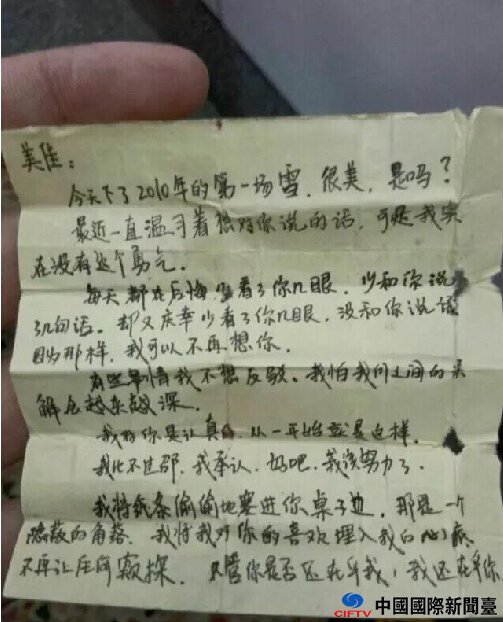 美佳：
今天下了2010年的第一场雪，很美，是吗？
最近一直温习着想对你说的话，可是我实
在没有这个勇气。
每天都在后悔少看了你几眼，少和你说
了几句话。却又庆幸少看了你几眼，没和你说话
因为那样，我可以不再想你。
有些事情我不想反驳。我怕我们之间的误
解会越来越深。
我对你是认真的，从一开始就是这样。
我比不过邵，我承认，好吧，我该努力了。
我将纸条偷偷地塞进你桌子边，那是一个
隐蔽的角落，我将我对你的喜欢埋入我的心底
不再让任何窥探，不管你是否还在乎我，我还在乎你
中國國際新聞臺
CIFTV